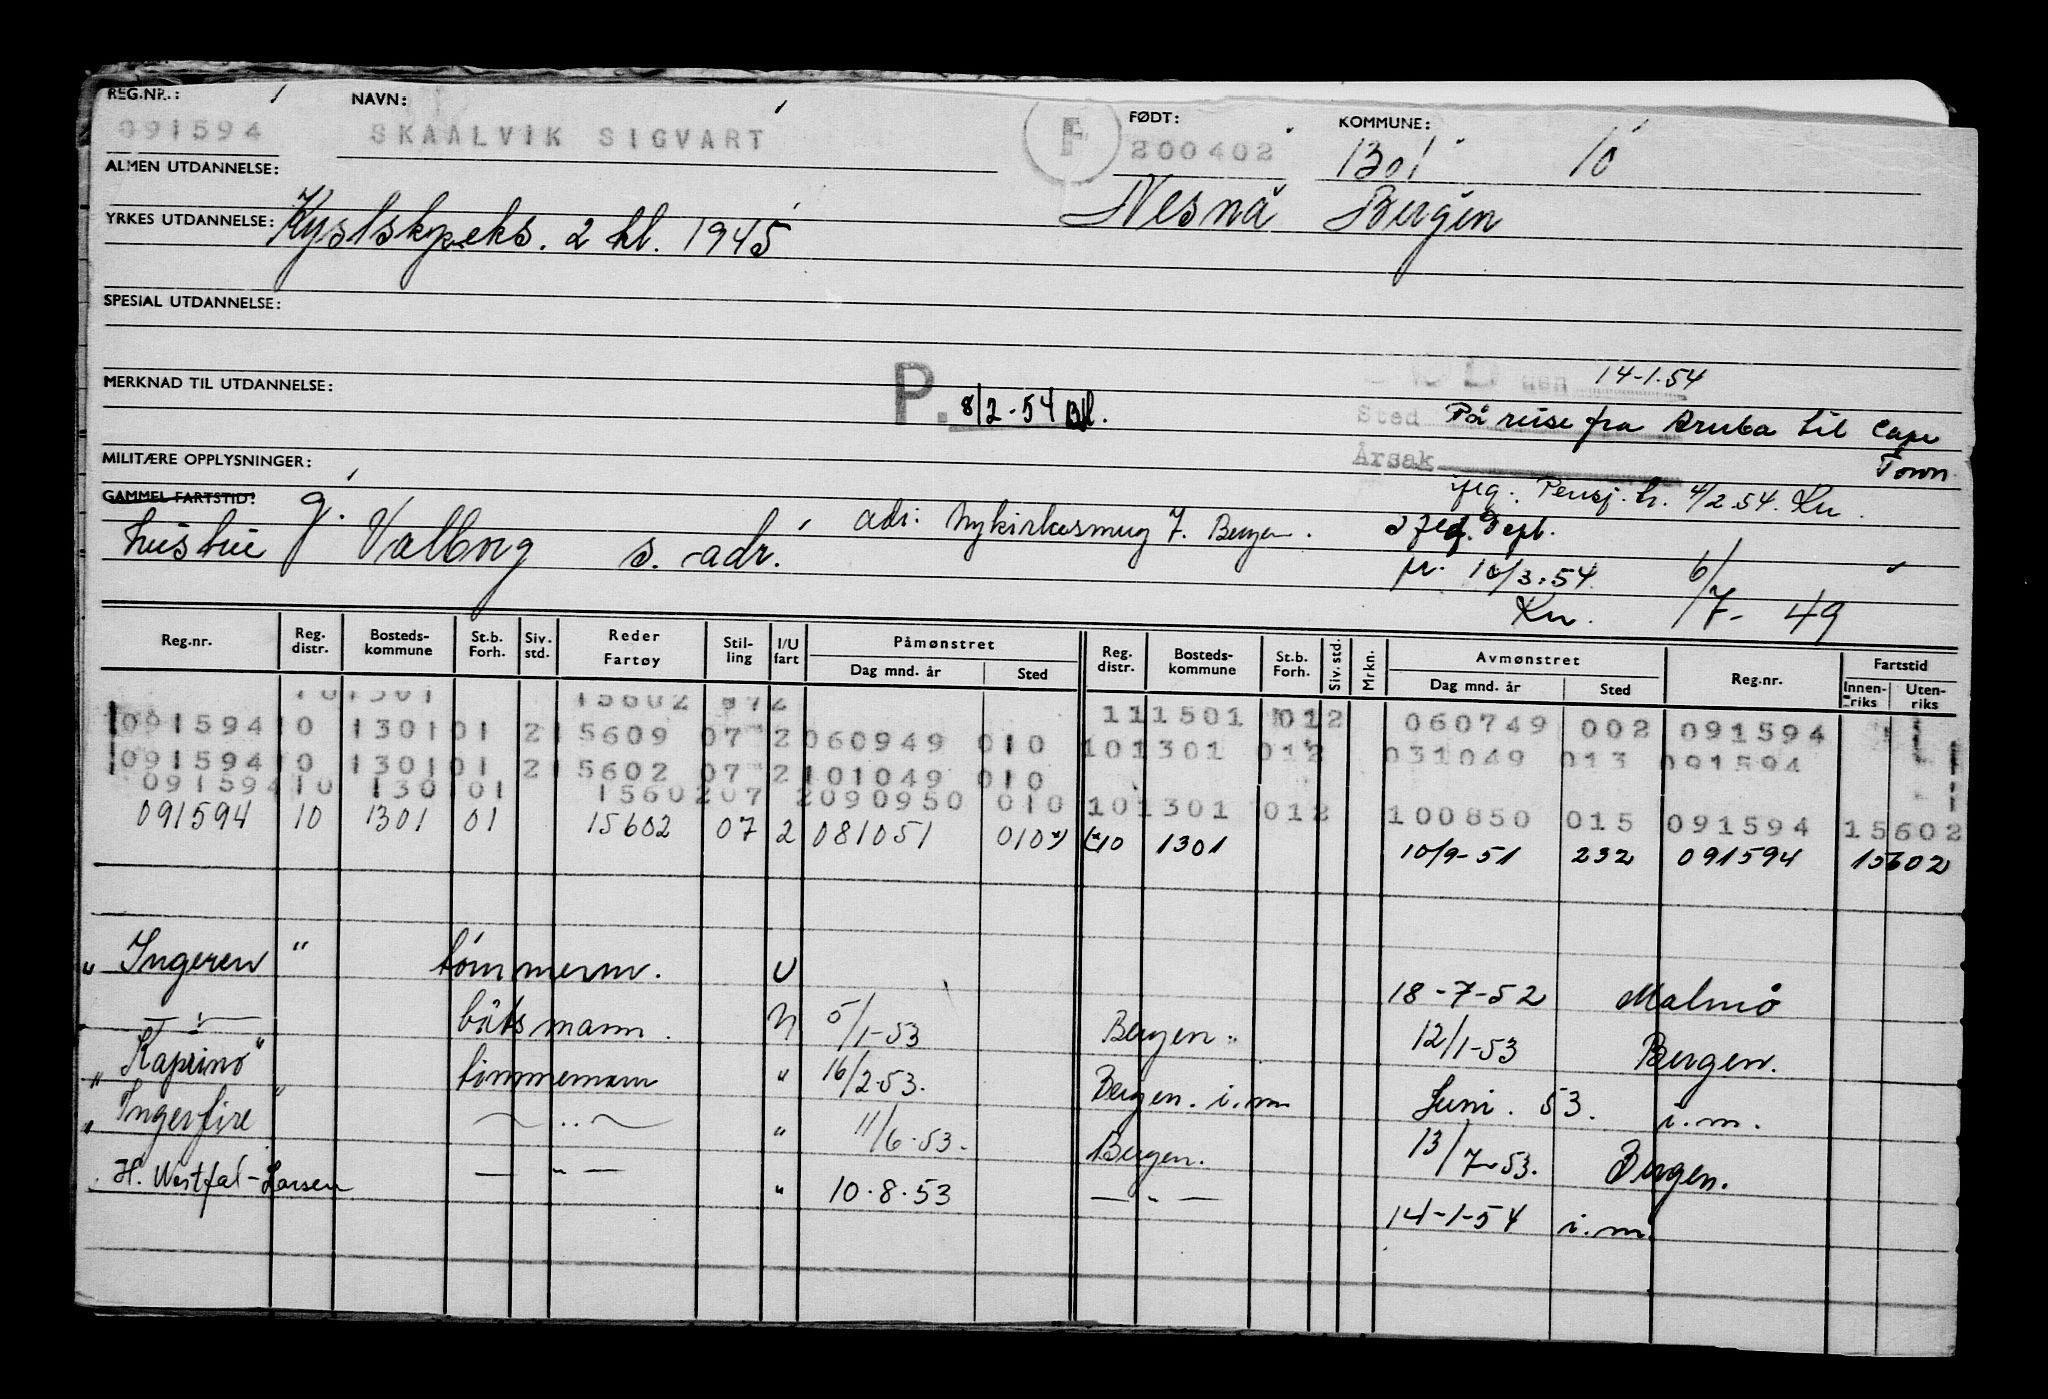 REG.NR.: NAVN: FØDT: KOMMUNE:
091594 SKAALVIK SIGVART F 200402 1301 10
ALMEN UTDANNELSE: Nesna Bergen
YRKES UTDANNELSE: Kystskp.eks. 2 kl. 1945
SPESIAL UTDANNELSE:
MERKNAD TIL UTDANNELSE: P. 8/2-54 den 14-1-54
Sted På reise fra Aruba til Cape Town
Årsak
MILITÆRE OPPLYSNINGER: Pensj. tr. 4/2 54. Kn.
GAMMEL FARTSTID: g.
hustru Valborg s. adr. adr: Nykirkesmug 7. Bergen.
pr. 10/3-54. Kn. 6/7-49
Reg.nr. Reg. distr. Bosteds-kommune St.b. Forh. Siv. std. Reder Fartøy Stil-ling I/U fart Påmønstret Reg. distr. Bosteds-kommune St.b. Forh. Siv. std. Mrkn. Avmønstret Reg.nr. Fartstid
Dag mnd. år Sted Dag mnd. år Sted Innen-riks Uten-riks
101301 15602 072 111501 012 060749 002 091594
091594 10 1301 01 2 15609 07 2 060949 010 101301 012 031049 013 091594
091594 10 1301 01 2 15602 07 2 101049 010
091594 10 1301 01 15602 07 2 090950 010 101301 012 100850 015 091594 15602
091594 10 1301 01 15602 07 2 081051 010 10 1301 10/9-51 232 091594 15602
" Ingeren " tømmerm. U 18-7-52 Malmö
— " — båtsmann. 5/1-53 Bergen. 12/1-53 Bergen.
" Kaprino " tømmermann " 16/2-53. Bergen. i.m. Juni. 53. i.m.
" Ingerfire " — " — " 11/6-53. Bergen. 13/7-53. Bergen.
H. Westfal-Larsen — " — " 10.8.53 — " — 14-1-54 i.m.